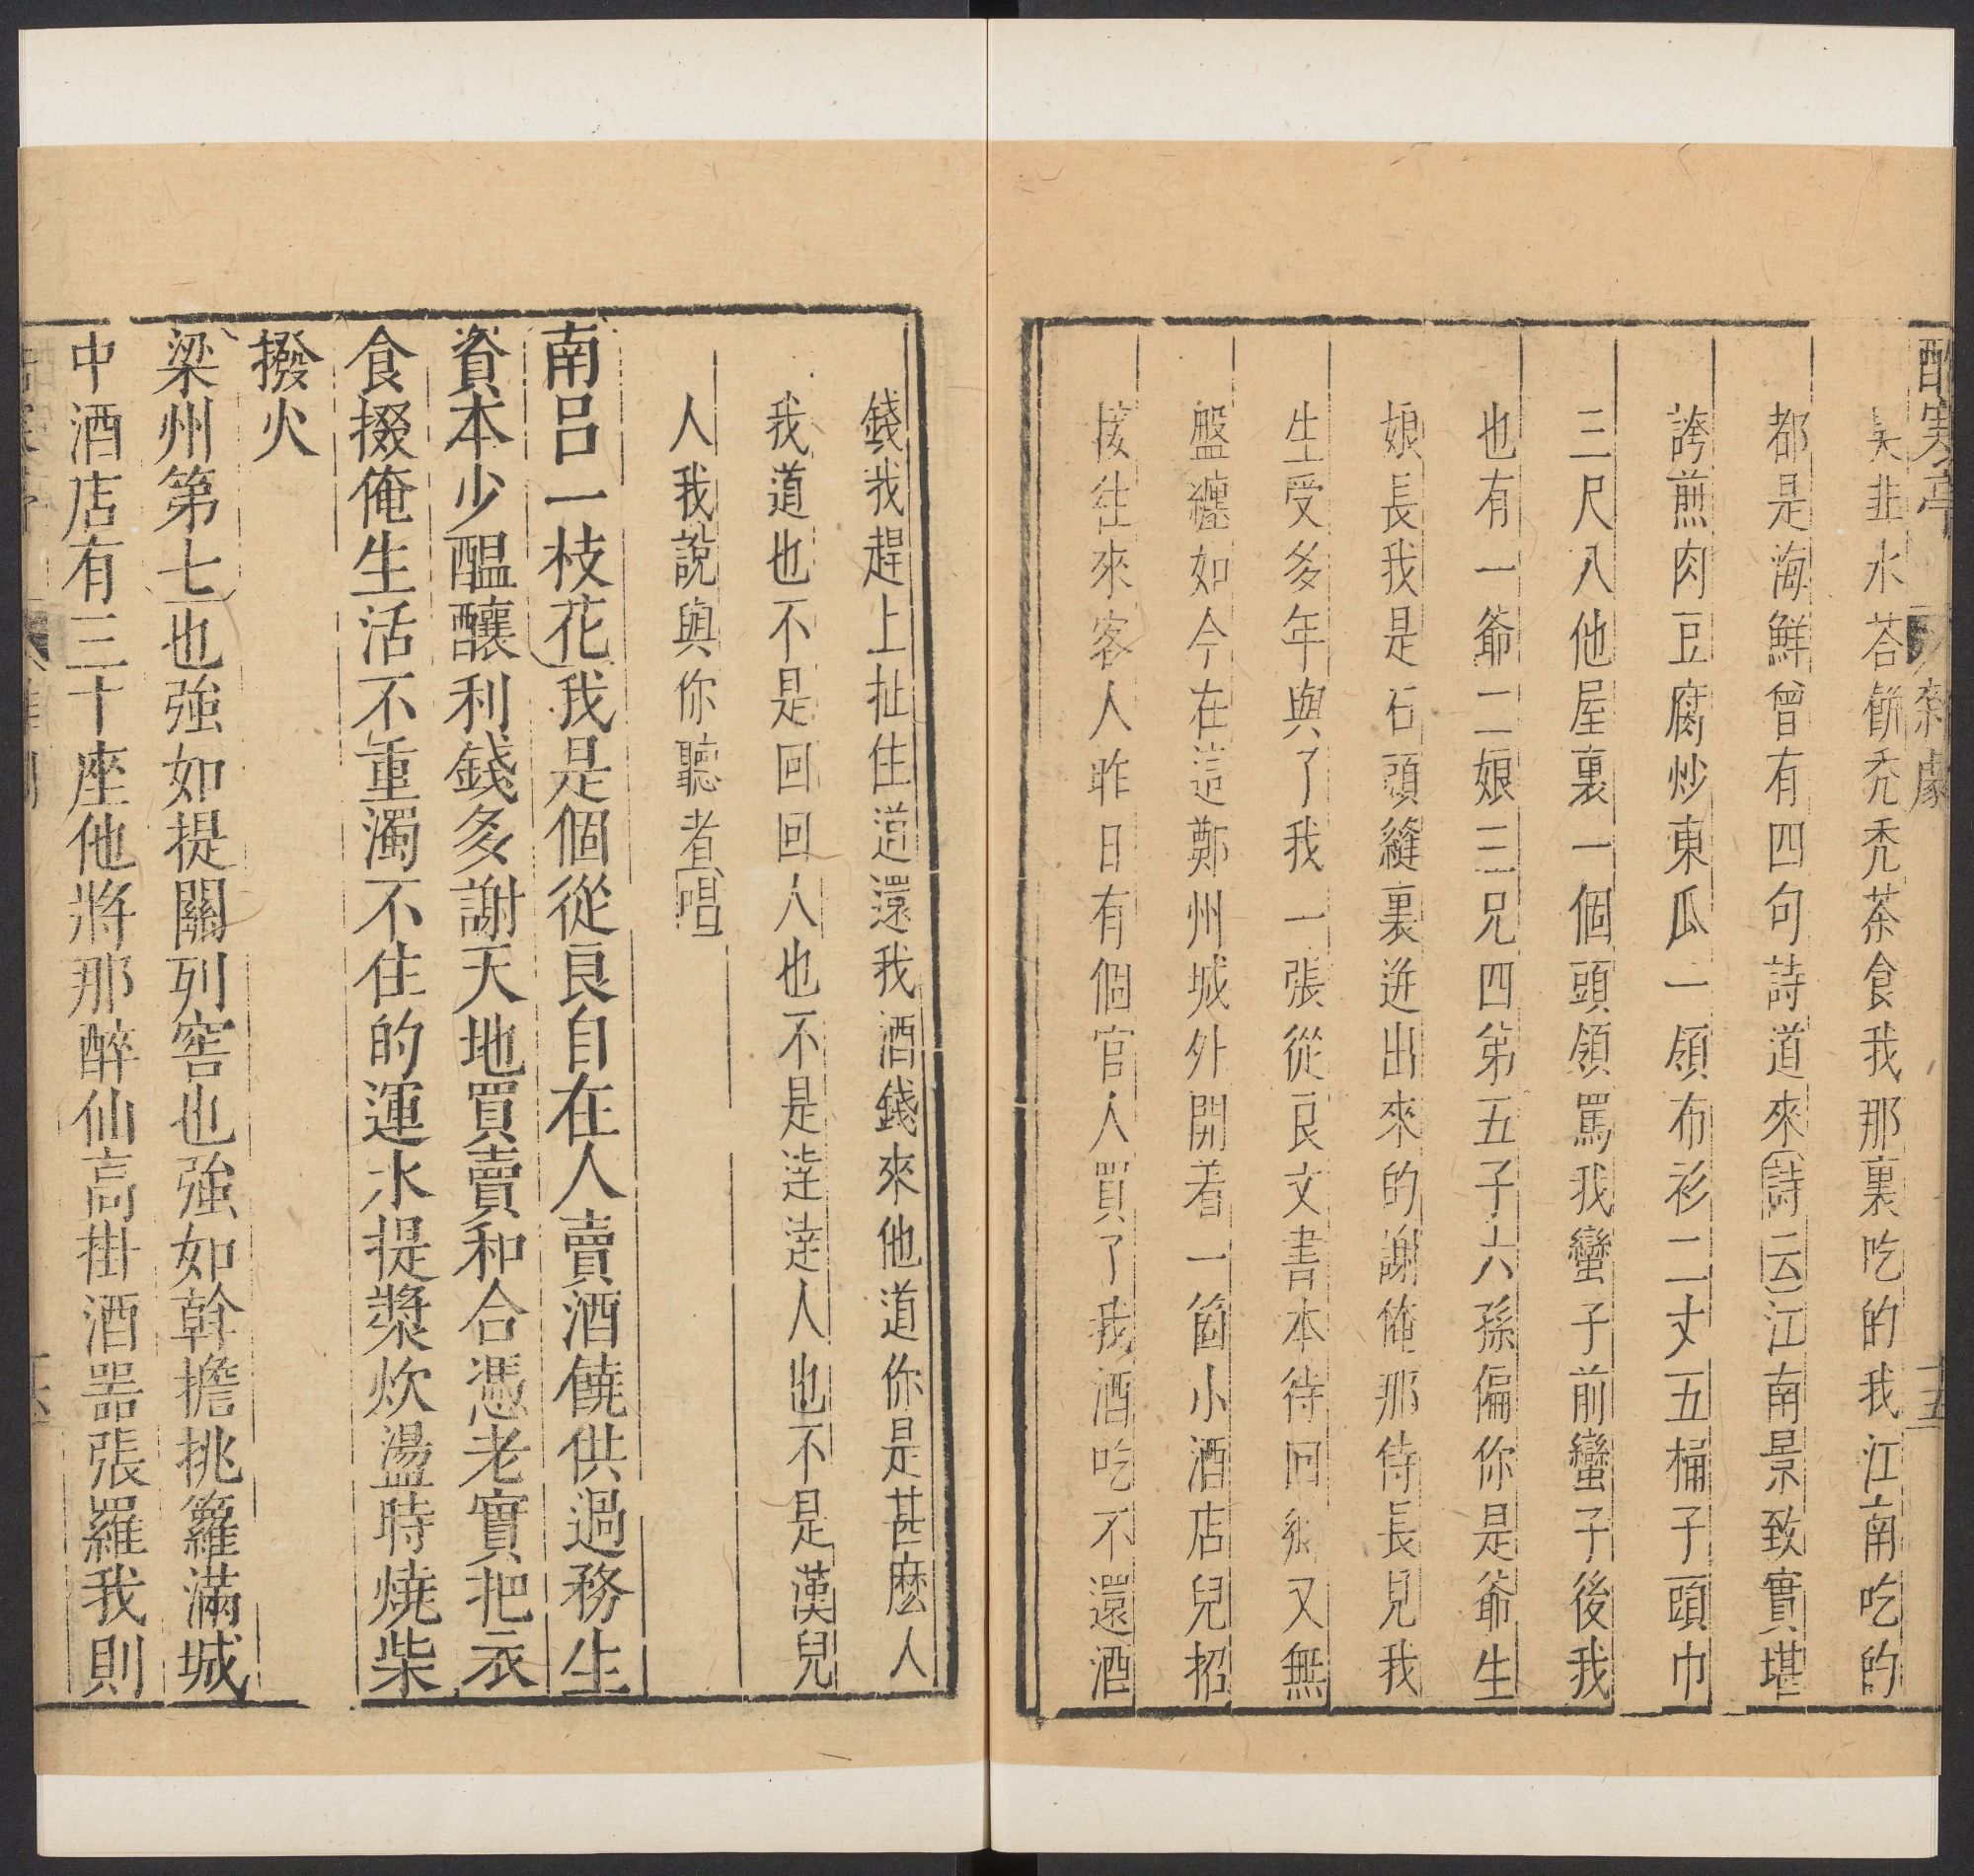 酷寒亭 雜劇 十五
臭韭水荅餅秃秃茶食我那裏吃的我江南吃的
都是海鮮曾有四句詩道來(詩云)江南景致實堪
誇煎肉豆腐炒東瓜一領布衫二丈五桶子頭巾
三尺八他屋裏一個頭領罵我蠻子前蠻子後我
也有一爺二娘三兄四弟五子六孫偏你是爺生
娘長我是石頭縫裏迸出來的謝俺那侍長見我
生受多年與了我一張從良文書本待回鄉又無
盤纏如今在這鄭州城外開着一箇小酒店兒招
接徃來客人昨日有個官人買了我酒吃不還酒
錢我趕上扯住道還我酒錢來他道你是甚麽人
我道也不是回回人也不是達達人也不是漢兒
人我說與你聽者唱
南吕一枝花我是個從良自在人賣酒饒供過務生
資本少醖釀利錢多謝天地買賣和合憑老實把衣
食掇俺生活不重濁不住的運水提漿炊盪時燒柴
撥火
梁州第七也強如提關列窖也強如幹擔挑籮滿城
中酒店有三十座他將那醉仙高掛酒噐張羅我則